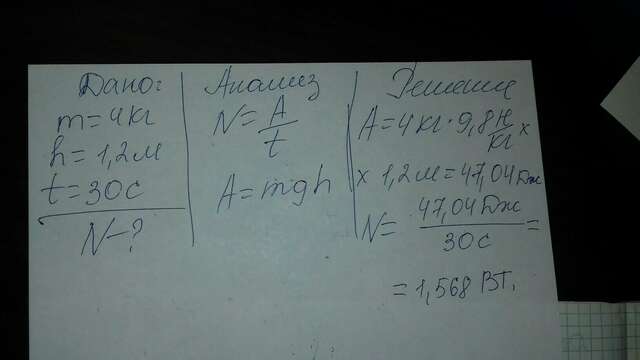 Дано:
m=4кг
h=1,2м
t=30с
N-?
Анализ
N=A/t
A=mgh
Решение
A=4кг·9,8Н/кг×
×1,2м=47,04Дж
N=47,04Дж/30с=
=1,568Вт.